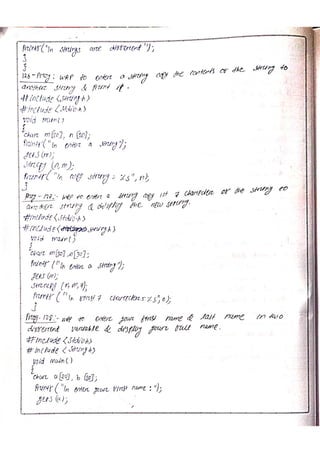 printf("\n strings are different");
}
}
126-Prog: WAP to enter a string copy the contents of the string to
another string & print it.
#include <string.h>
#include <stdio.h>
void main()
{
char m[20], n[20];
printf("\n enter a string");
gets(m);
strcpy(n,m);
printf("\n copy string = %s", n);
}
Prog-: WAP to enter a string copy 1st 7 character of the string to
another string & display the new string.
#include <stdio.h>
#include <string.h>
void main()
{
char m[30], n[30];
printf("\n enter a string");
gets(m);
strncpy(n,m,7);
printf("\n first 7 character = %s", n);
}
Prog-128:- WAP to enter your first name & last name in two
different variable & display your full name.
#include <stdio.h>
#include <string.h>
void main()
{
char a[20], b[20];
printf("\n enter your first name:");
gets(a);